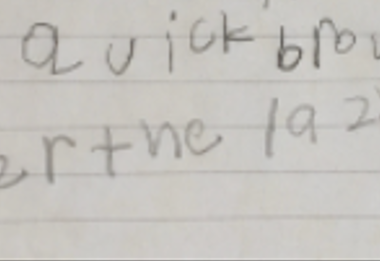 a quick brow
er the laz